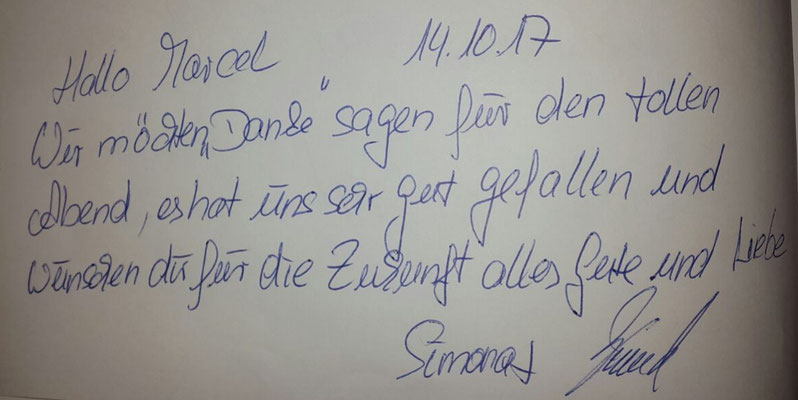 Hallo Marcel 14.10.17
Wir möchten „Danke" sagen für den tollen
Abend, es hat uns sehr gut gefallen und
wünschen dir für die Zukunft alles Gute und Liebe
Simona